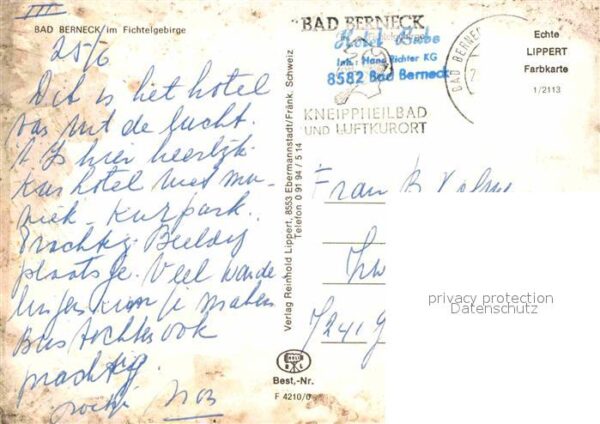 III
BAD BERNECK im Fichtelgebirge
25/6
Dit is het hotel
van uit de lucht.
't Is hier heerlijk
Kurhotel met mu-
ziek - Kurpark.
Prachtig. Beeldig
plaatsje. Veel wande-
lingen kun je maken
Bus tochten ook
prachtig.
Verlag Reinhold Lippert, 8553 Ebermannstadt/Fränk. Schweiz
Telefon 0 91 94 / 5 14
BAD BERNECK
Hotel
Inh.: Hans Richter KG
8582 Bad Berneck
KNEIPPHEILBAD
UND LUFTKURORT
BAD BERNE
Echte
LIPPERT
Farbkarte
1/2113
Frau B.
privacy protection
Datenschutz
Best.-Nr.
F 4210/0